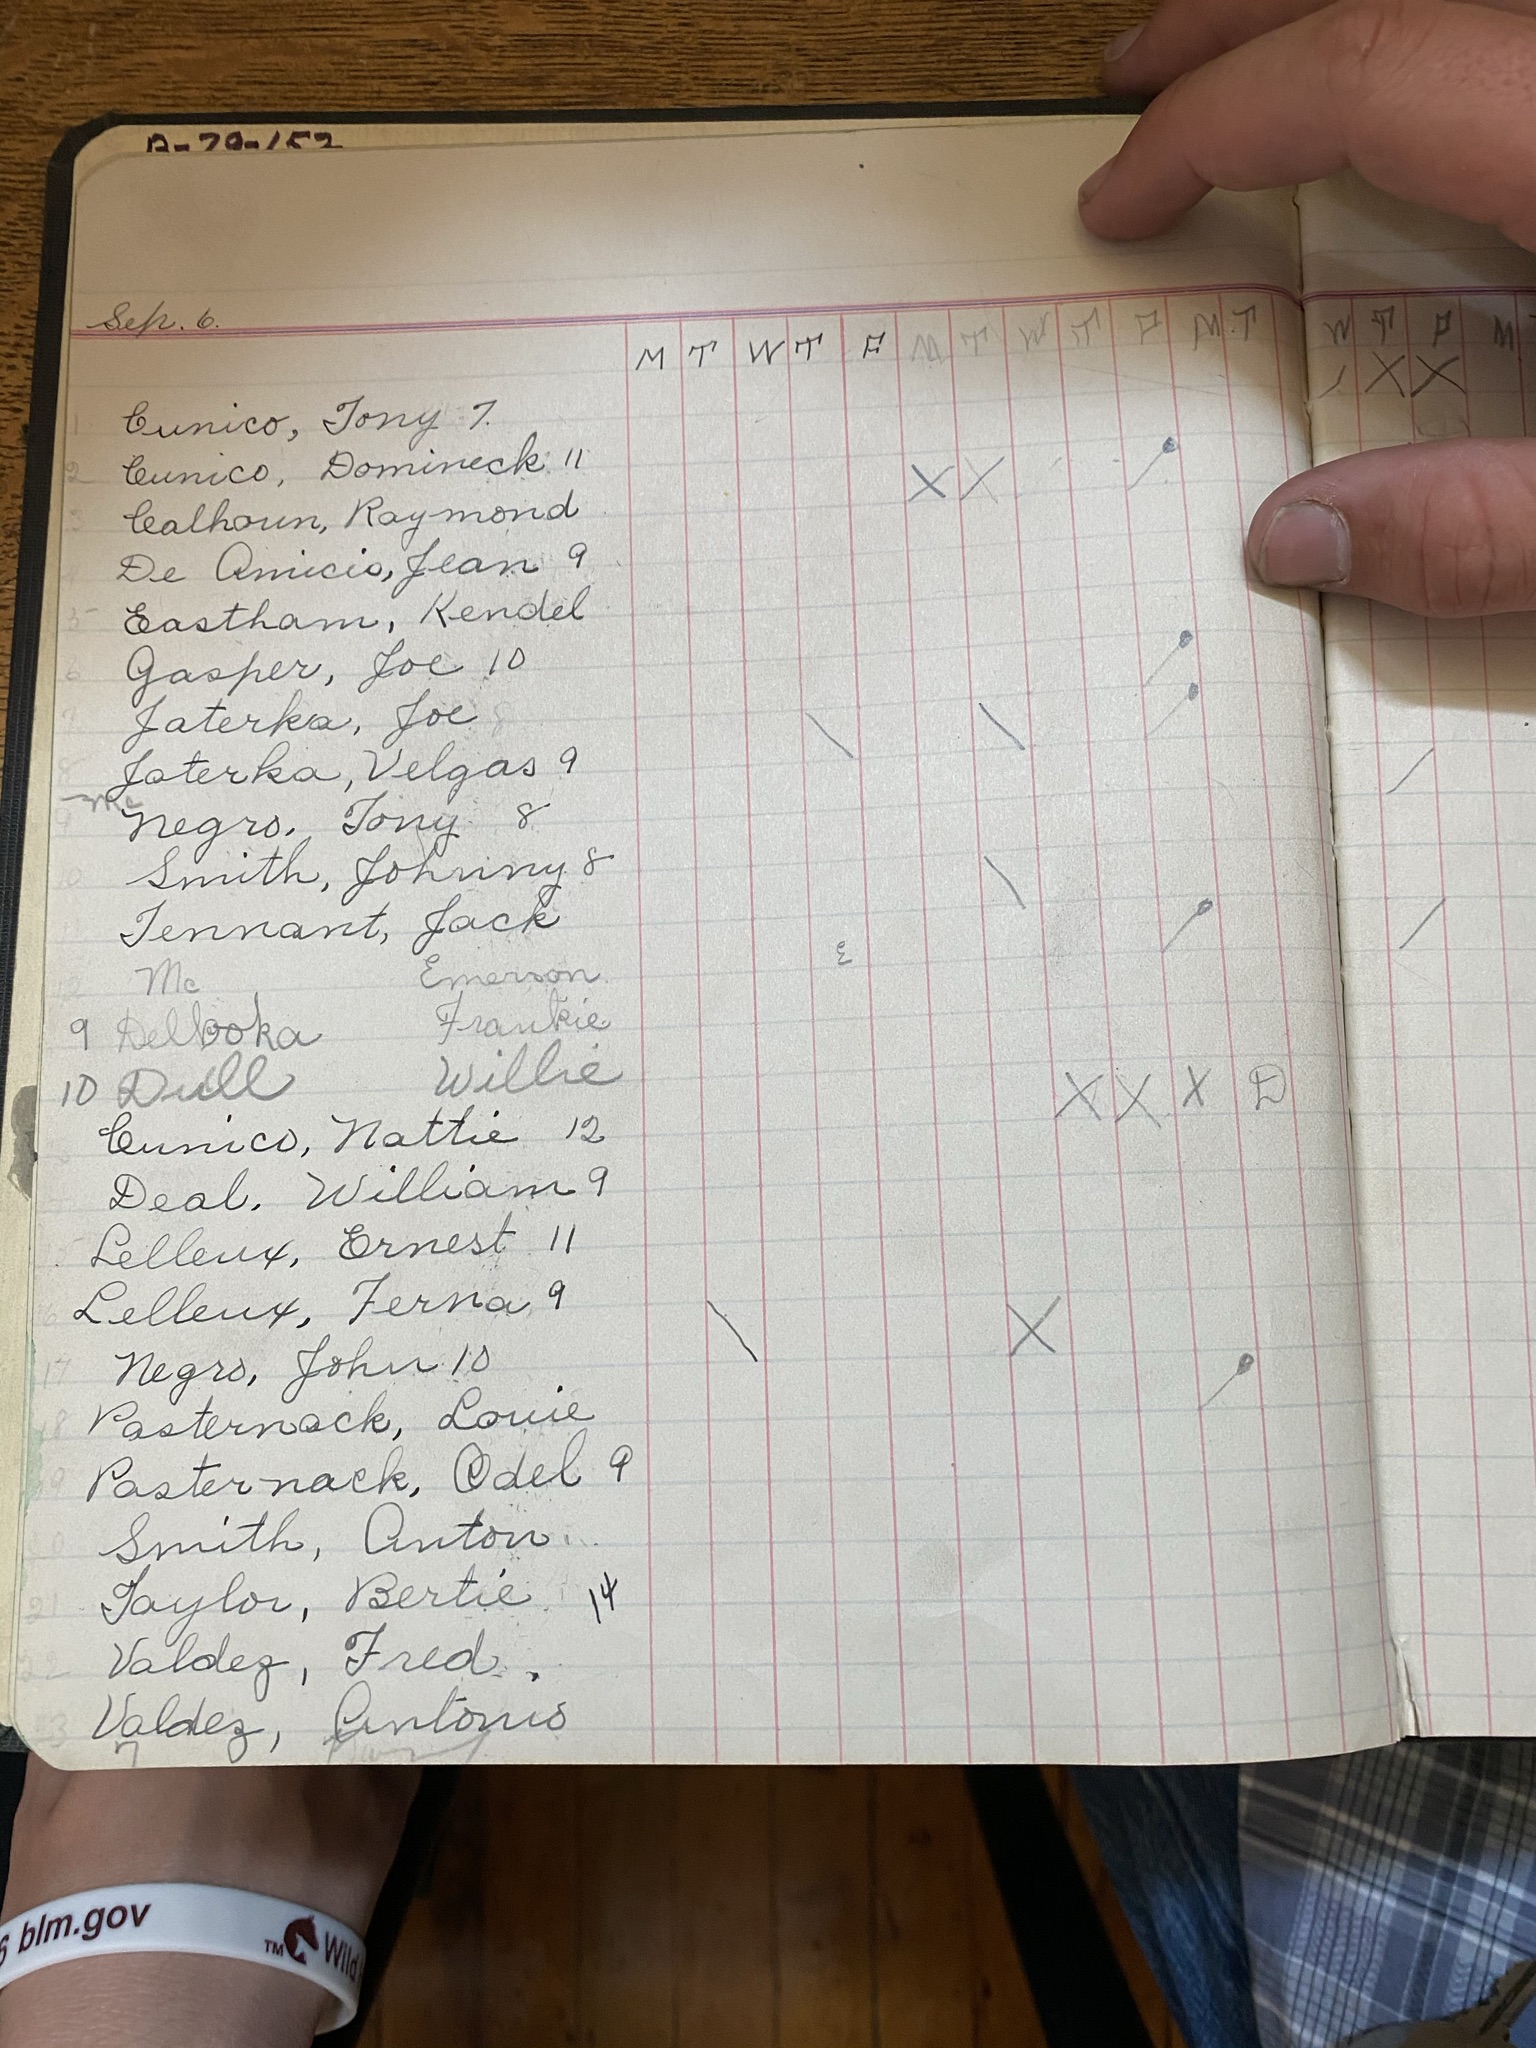 Sep. 6.
M T W T F M T W T F M T W T F M
X X
Cunico, Tony 7.
2 Cunico, Domineck 11 X X
3 Calhoun, Raymond
De Amicio, Jean 9
5 Eastham, Kendel
6 Gasper, Joe 10
7 Jaterka, Joe 8
8 Jaterka, Velgas 9
Negro, Tony 8
Smith, Johnny 8
Tennant, Jack
12 Mc Emerson E
9 Delboka Frankie
10 Dull Willie X X X D
Cunico, Nattie 12
Deal, William 9
15 Lelleux, Ernest 11
6 Lelleux, Ferna 9 X
17 Negro, John 10
18 Pasternack, Louie
19 Pasternack, Odel 9
Smith, Anton
21 Taylor, Bertie 14
22 Valdez, Fred.
3 Valdez, Antonio
7
6 blm.gov
TM Wild